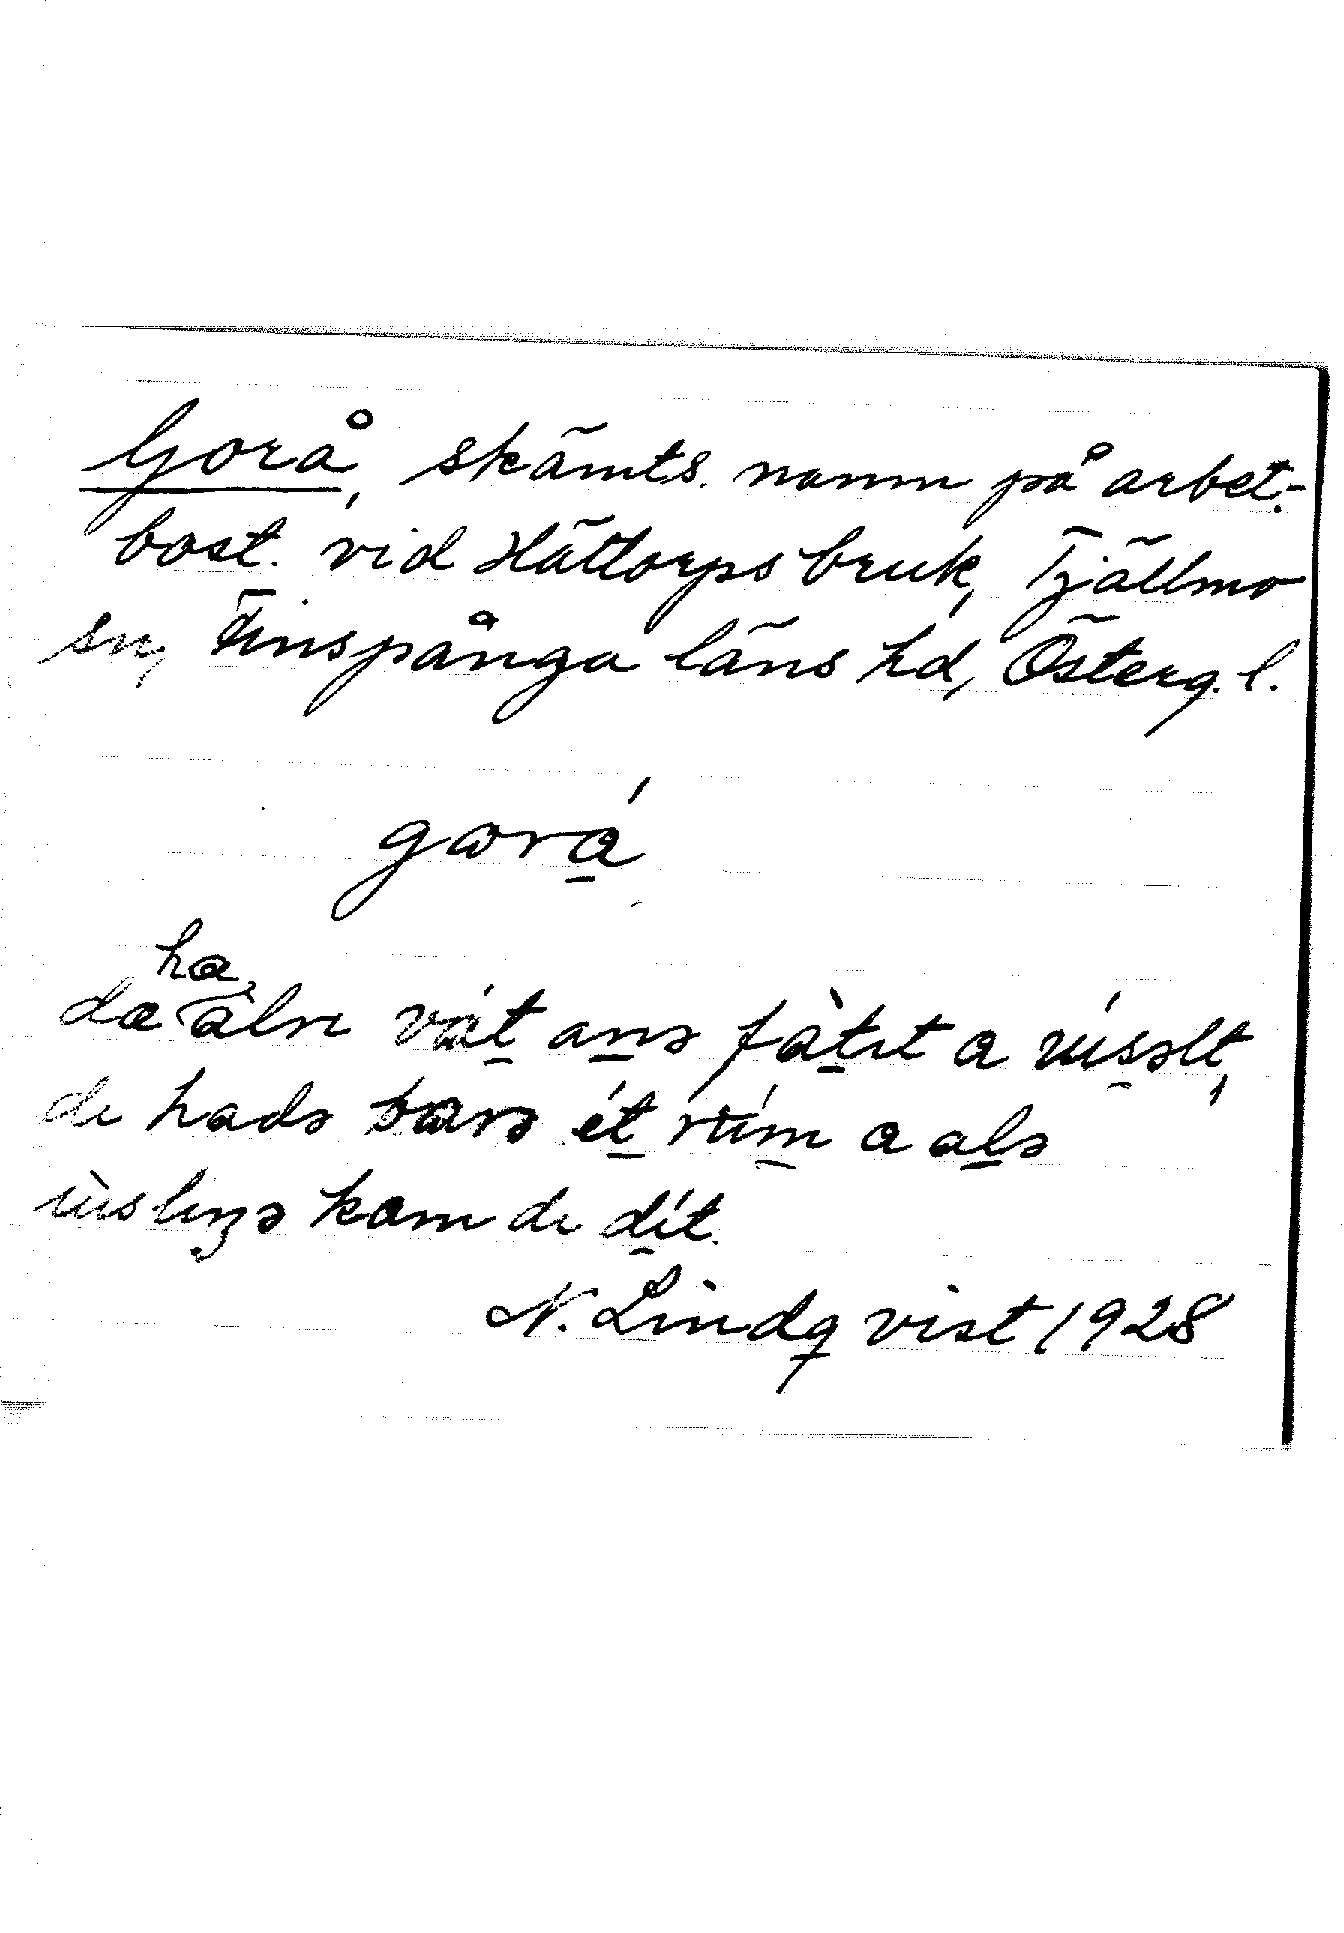 Gorå, skämts. namn på arbet.-
bost. vid Hättorps bruk, Tjällmo
sn, Finspånga läns hd, Österg. l.
gorá
ha
dæ aldrı vat anə fàtıt a úsəlt,
dı hadə barə ét rúm a alə
ùslıŋə kam dı dít.
N. Lindqvist 1928